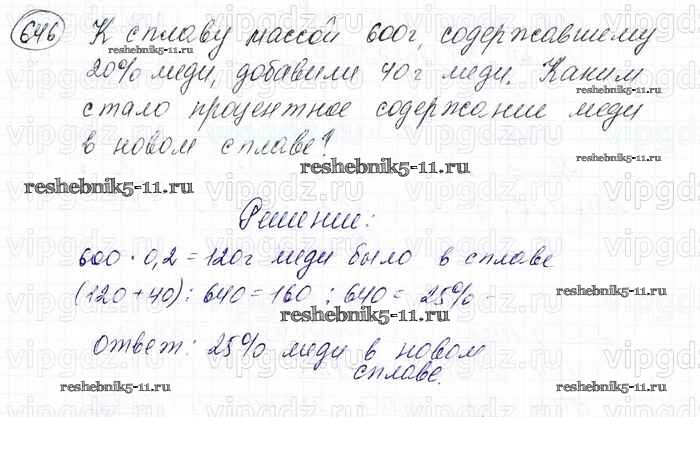 646 К сплаву массой 600г, содержавшему
reshebnik5-11.ru
20% меди, добавили 40г меди. Каким
стало процентное содержание меди
в новом сплаве?
reshebnik5-11.ru
reshebnik5-11.ru
reshebnik5-11.ru
Решение:
600 · 0,2 = 120г меди было в сплаве
(120 + 40) : 640 = 160 : 640 = 25%
reshebnik5-11.ru
reshebnik5-11.ru
ответ: 25% меди в новом
сплаве.
reshebnik5-11.ru
reshebnik5-11.ru